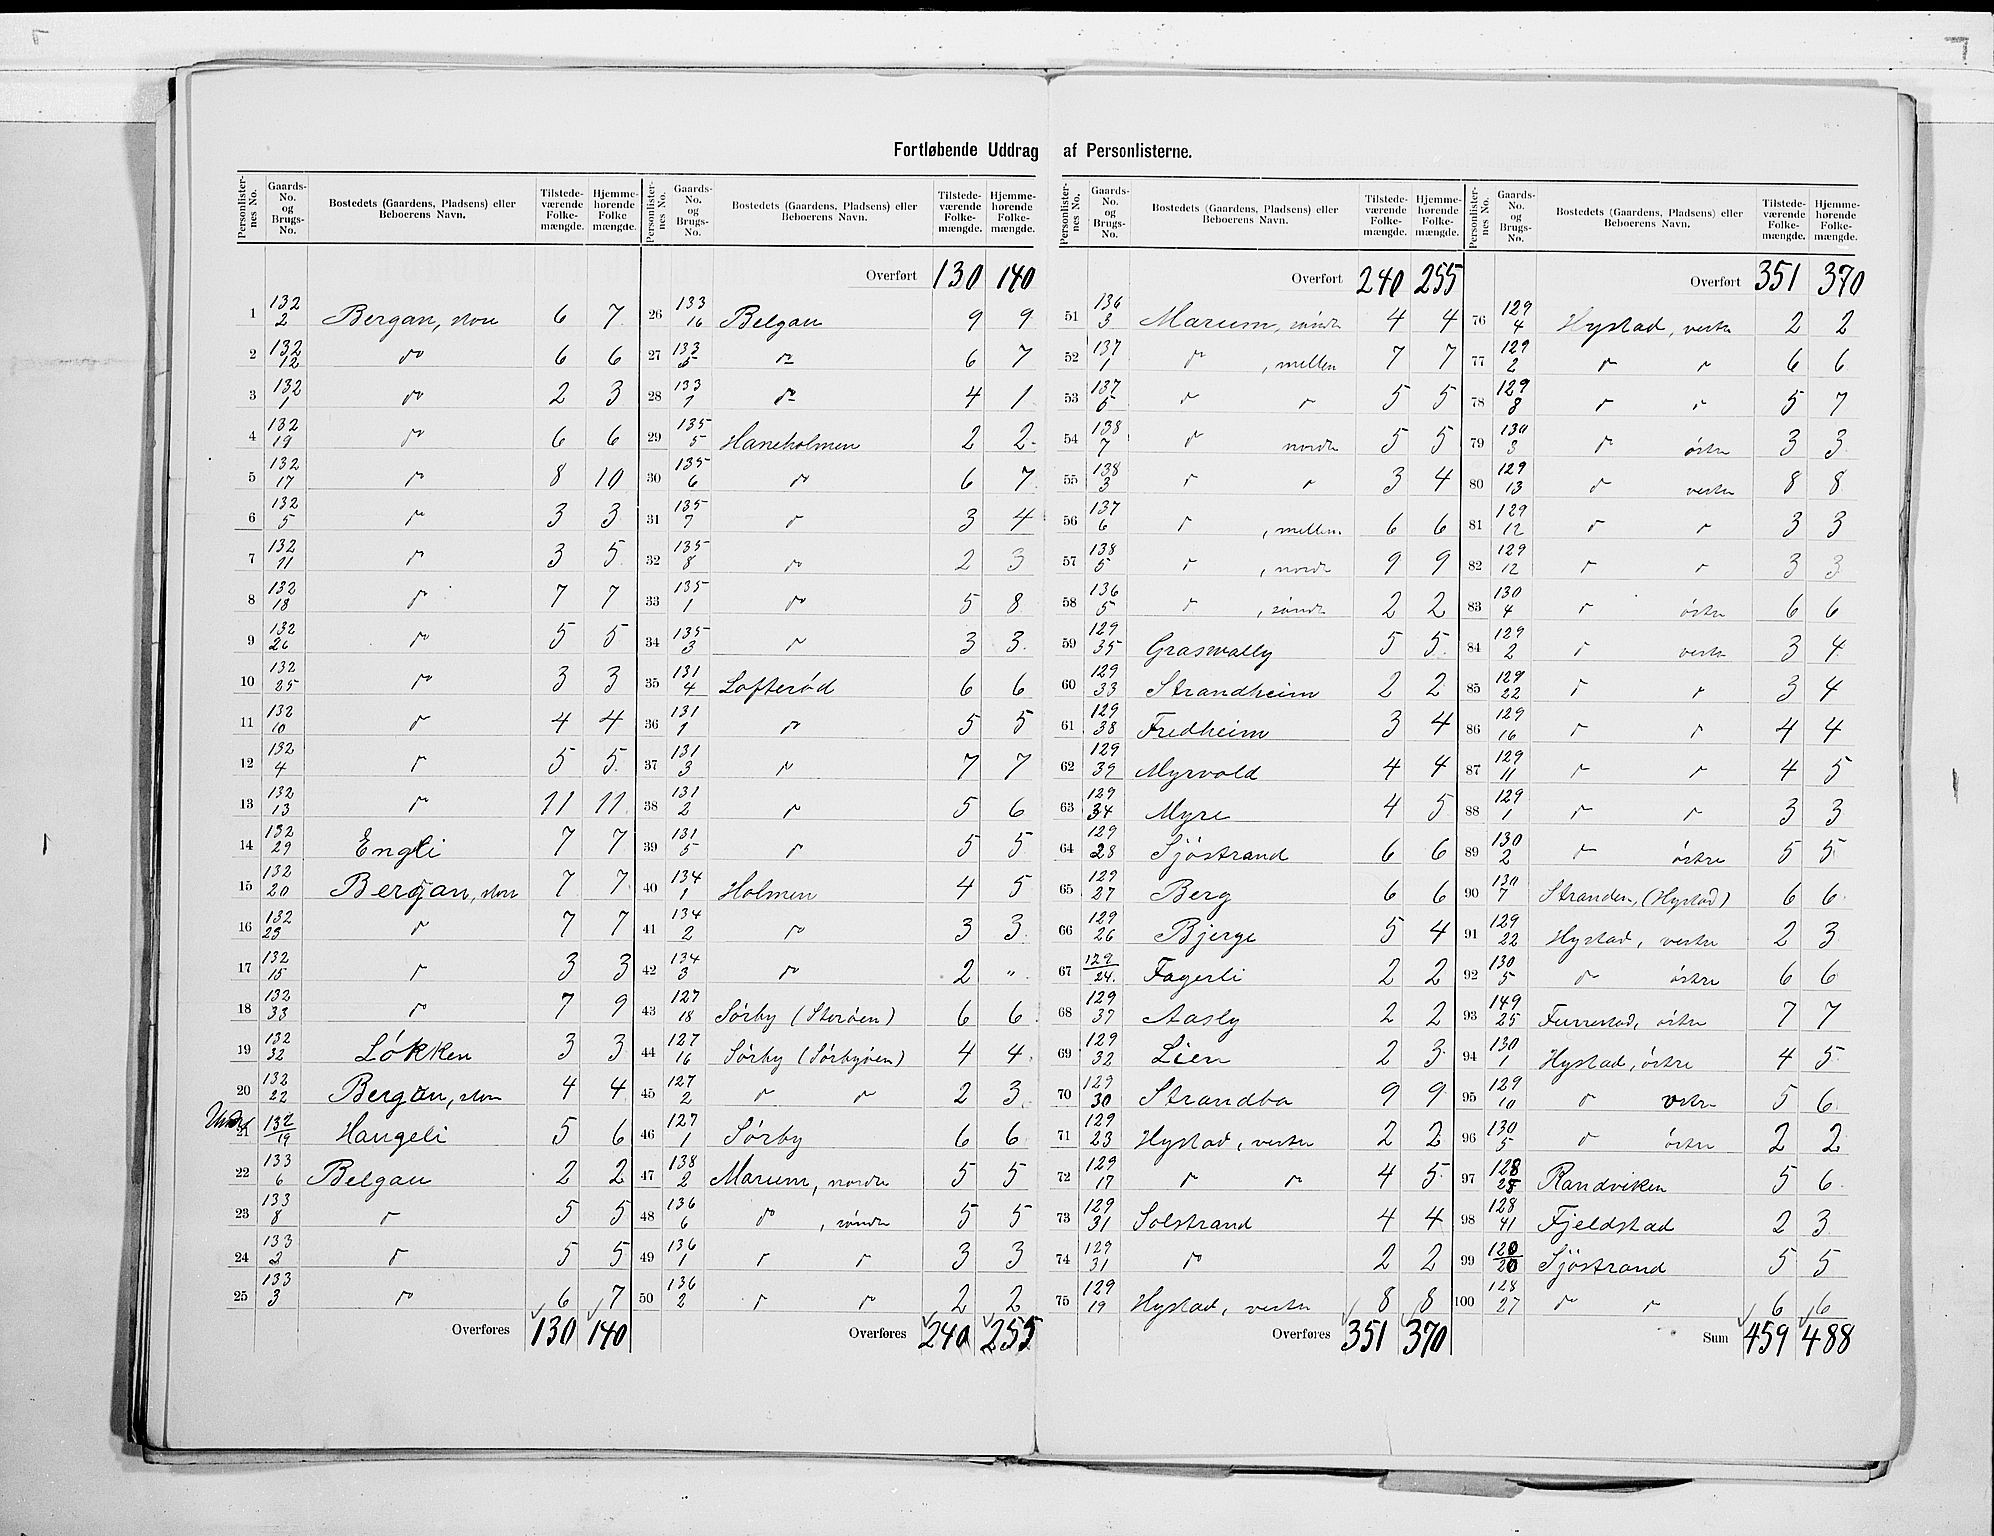 Fortløbende Uddrag af Personlisterne.
Personlister-nes No. Gaards-No. og Brugs-No. Bostedets (Gaardens, Pladsens) eller Beboerens Navn. Tilstede-værende Folke-mængde. Hjemme-hørende Folke mængde.
1 132/2 Bergan, store 6 7
2 132/12 do 6 6
3 132/1 do 2 3
4 132/19 do 6 6
5 132/17 do 8 10
6 132/5 do 3 3
7 132/11 do 3 5
8 132/18 do 7 7
9 132/26 do 5 5
10 132/25 do 3 3
11 132/10 do 4 4
12 132/4 do 5 5
13 132/13 do 11 11
14 132/29 Engli 7 7
15 132/20 Bergan, store 7 7
16 132/23 do 7 7
17 132/15 do 3 3
18 132/33 do 7 9
19 132/32 Løkken 3 3
20 132/22 Bergan, store 4 4
21 132/19 Haugeli 5 6
22 133/6 Belgau 2 2
23 133/8 do 5 5
24 133/2 do 5 5
25 133/3 do 6 7
Overføres 130 140
Personlister-nes No. Gaards-No. og Brugs-No. Bostedets (Gaardens, Pladsens) eller Beboerens Navn. Tilstede-værende Folke-mængde. Hjemme-hørende Folke-mængde.
Overført 130 140
26 133/16 Belgau 9 9
27 133/5 do 6 7
28 133/1 do 4 1
29 135/5 Haneholmen 2 2
30 135/6 do 6 7
31 135/7 do 3 4
32 135/8 do 2 3
33 135/1 do 5 8
34 135/3 do 3 3
35 131/4 Lofterød 6 6
36 131/1 do 5 5
37 131/3 do 7 7
38 131/2 do 5 6
39 131/5 do 5 5
40 134/1 Holmen 4 5
41 134/2 do 3 3
42 134/3 do 2 "
43 127/18 Sørby (Storøen) 6 6
44 127/16 Sørby (Sørbyøen) 4 4
45 127/2 do do 2 3
46 127/1 Sørby 6 6
47 138/2 Marum, nordre 5 5
48 136/6 do, søndre 5 5
49 136/1 do do 3 3
50 136/2 do do 2 2
Overføres 240 255
Personlister-nes No. Gaards-No. og Brugs-No. Bostedets (Gaardens, Pladsens) eller Beboerens Navn. Tilstede-værende Folke-mængde. Hjemme-hørende Folke-mængde.
Overført 240 255
51 136/3 Marum, søndre 4 4
52 137/1 do, mellem 7 7
53 137/5 do do 5 5
54 138/7 do nordre 5 5
55 138/3 do do 3 4
56 137/6 do, mellem 6 6
57 138/5 do, nordre 9 9
58 136/5 do, søndre 2 2
59 129/35 Graswally 5 5
60 129/33 Strandheim 2 2
61 129/38 Fredheim 3 4
62 129/39 Myrvold 4 4
63 129/34 Myre 4 5
64 129/28 Sjøstrand 6 6
65 129/27 Berg 6 6
66 129/26 Bjerge 5 4
67 129/24 Fagerli 2 2
68 129/37 Aasly 2 2
69 129/32 Lien 2 3
70 129/30 Strandbo 9 9
71 129/23 Hystad, vestre 2 2
72 129/17 do do 4 5
73 129/31 Solstrand 4 4
74 129/31 do 2 2
75 129/19 Hystad, vestre 8 8
Overføres 351 370
Personlister-nes No. Gaards-No. og Brugs-No. Bostedets (Gaardens, Pladsens) eller Beboerens Navn. Tilstede-værende Folke-mængde. Hjemme-hørende Folke-mængde.
Overført 351 370
76 129/4 Hystad, vestre 2 2
77 129/2 do do 6 6
78 129/8 do do 5 7
79 130/3 do østre 3 3
80 129/13 do vestre 8 8
81 129/12 do do 3 3
82 129/12 do do 3 3
83 130/4 do østre 6 6
84 129/2 do vestre 3 4
85 129/22 do do 3 4
86 129/16 do do 4 4
87 129/11 do do 4 5
88 129/1 do do 3 3
89 130/2 do østre 5 5
90 130/7 Stranden, (Hystad) 6 6
91 129/22 Hystad, vestre 2 3
92 130/5 do østre 6 6
93 149/25 Furrestad, østre 7 7
94 130/1 Hystad, østre 4 5
95 129/10 do vestre 5 6
96 130/5 do østre 2 2
97 128/28 Randviken 5 6
98 128/41 Fjeldstad 2 3
99 120/20 Sjøstrand 5 5
100 128/27 do do 6 6
Sum 459 488